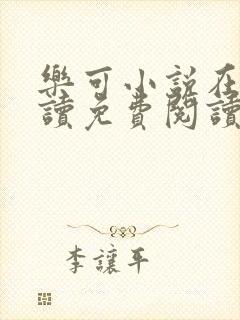 樂可小説在
讀免費閱讀
李讓平